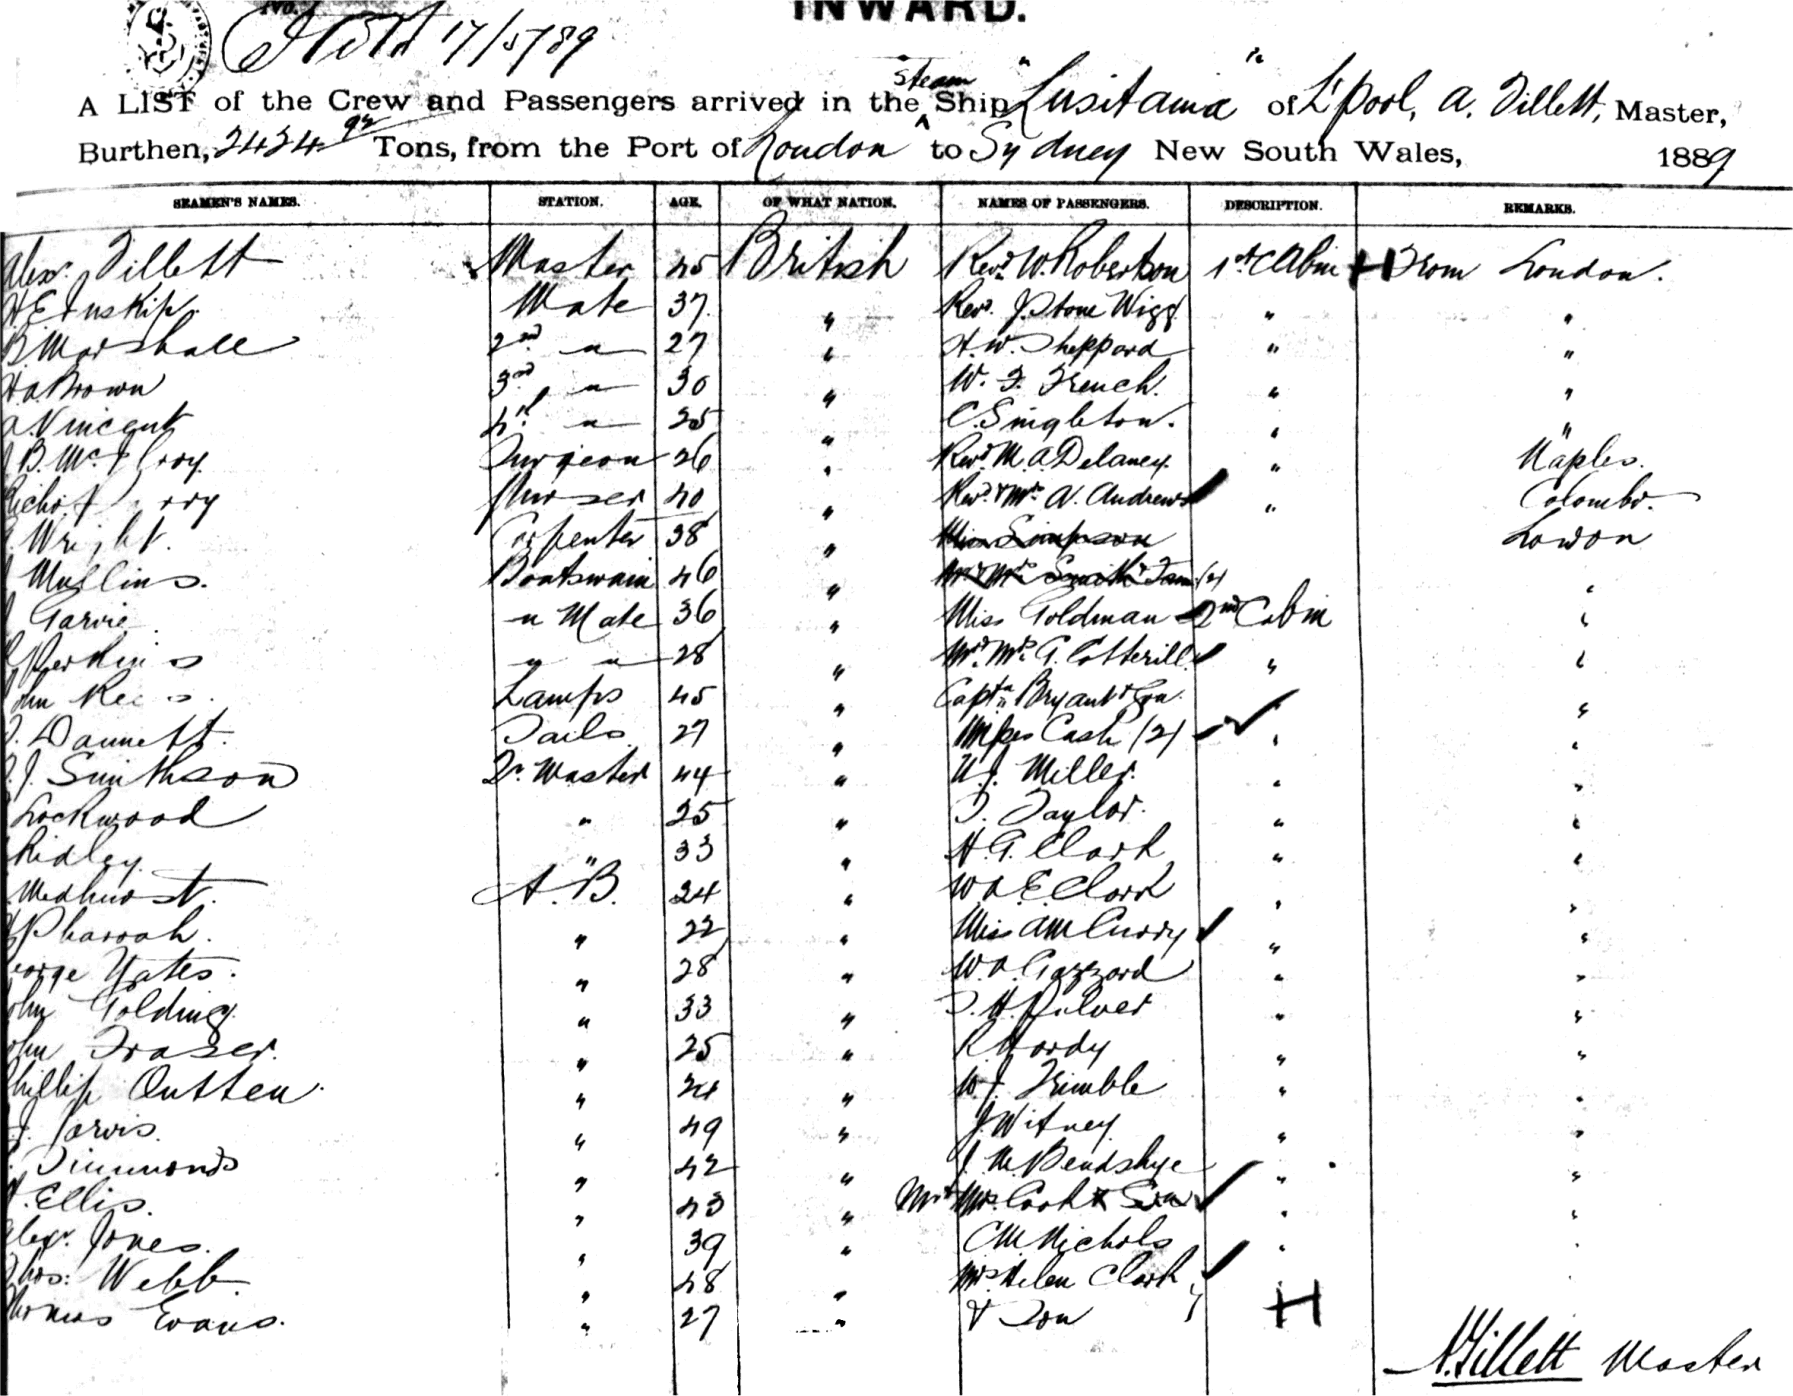 No.
INWARD.
17/5/89
A LIST of the Crew and Passengers arrived in the Steam Ship "Lusitania" of L'pool, A. Tillett, Master,
Burthen, 2424 92 Tons, from the Port of London to Sydney New South Wales, 1889
SEAMEN'S NAMES. STATION. AGE. OF WHAT NATION. NAMES OF PASSENGERS. DESCRIPTION. REMARKS.
Alexr. Tillett Master 45 British Revd. W. Robertson 1st Cabin H From London.
H E Inskip. Mate 37. " Revd. J. Stone Wigg " "
B Marshall 2nd " 27 " H. W. Sheppard " "
H. A. Brown 3rd " 30 " W. F. French. " "
A. Vincent 4th " 25 " C. Singleton. " "
J B. McIlroy. Surgeon 26 " Revd. M. A. Delaney. " Naples.
Purser 40 " Revd. & Mrs. A. Andrews " Colombo.
Wright. Carpenter 38 " Miss Simpson London
Mullins. Boatswain 46 " Mr & Mrs Smith & Fam (2) "
Garvie " Mate 36 " Miss Goldman 2nd Cabin "
Perkins " " 28 " Mr. & Mrs. G. Cotterill. " "
John Rees. Lamps 45 " Captn. Bryant & Son. " "
Dannett. Sails 27 " Misses Cash (2) " "
J. Smithson Qr. Master 44 " W. J. Miller. " "
Lockwood " 25 " T. Taylor. " "
Ridley. " 33 " H. G. Clark " "
Medhurst. A. B. 24 " W. A. E. Clark " "
Pharoah. " 22 " Miss A M Curry " "
George Yates. " 28 " W. A. Gazzard " "
John Golding. " 33 " T. H. Pulver " "
John Fraser. " 25 " R. Hardy " "
Phillip Outten. " 24 " W. J. Trimble " "
J. Jarvis. " 49 " J. Witney. " "
Simmonds " 42 " J. M. Bendshye " "
Ellis. " 43 " Mr & Mrs. Cook & Son " "
Alexr. Jones. " 39 " C M Nichols " "
Thos: Webb. " 48 " Mrs Helen Clark " "
Thomas Evans. " 27 " & Son H
A. Tillett Master